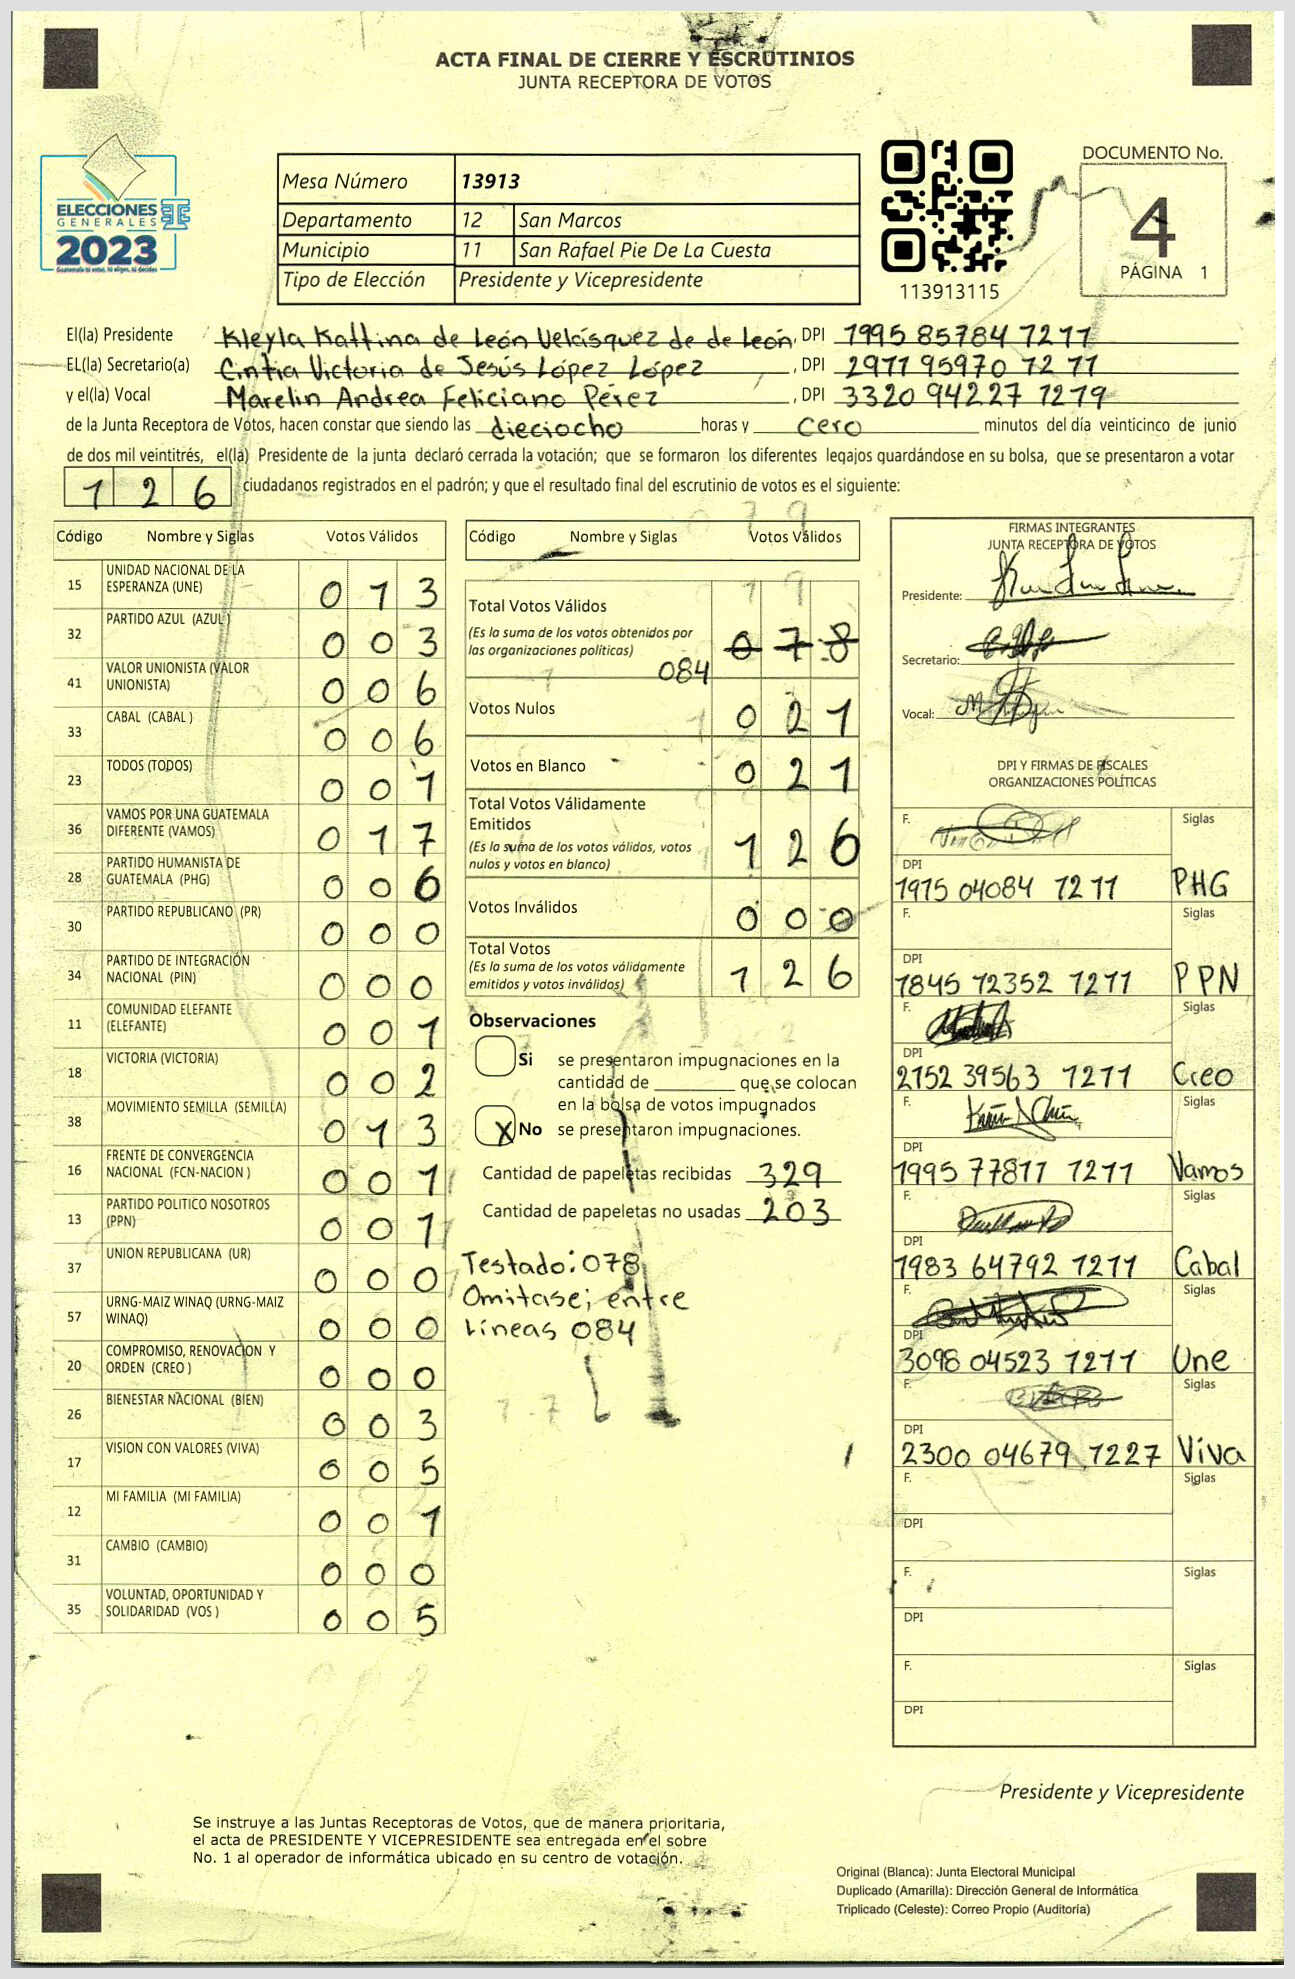 ACTA FINAL DE CIERRE Y ESCRUTINIOS
JUNTA RECEPTORA DE VOTOS
ELECCIONES
GENERALES
2023
Guatemala tú votas, tú eliges, tú decides
Mesa Número 13913
Departamento 12 San Marcos
Municipio 11 San Rafael Pie De La Cuesta
Tipo de Elección Presidente y Vicepresidente
113913115
DOCUMENTO No.
4
PÁGINA 1
El(la) Presidente Kleyla Kattina de León Velásquez de de León, DPI 1995 85784 1211
EL(la) Secretario(a) Cintia Victoria de Jesús López López, DPI 2971 95970 1211
y el(la) Vocal Marelin Andrea Feliciano Pérez, DPI 3320 94227 1219
de la Junta Receptora de Votos, hacen constar que siendo las dieciocho horas y cero minutos del día veinticinco de junio
de dos mil veintitrés, el(la) Presidente de la junta declaró cerrada la votación; que se formaron los diferentes legajos guardándose en su bolsa, que se presentaron a votar
126 ciudadanos registrados en el padrón; y que el resultado final del escrutinio de votos es el siguiente:
Código Nombre y Siglas Votos Válidos
15 UNIDAD NACIONAL DE LA ESPERANZA (UNE) 013
32 PARTIDO AZUL (AZUL) 003
41 VALOR UNIONISTA (VALOR UNIONISTA) 006
33 CABAL (CABAL ) 006
23 TODOS (TODOS) 001
36 VAMOS POR UNA GUATEMALA DIFERENTE (VAMOS) 017
28 PARTIDO HUMANISTA DE GUATEMALA (PHG) 006
30 PARTIDO REPUBLICANO (PR) 000
34 PARTIDO DE INTEGRACIÓN NACIONAL (PIN) 000
11 COMUNIDAD ELEFANTE (ELEFANTE) 001
18 VICTORIA (VICTORIA) 002
38 MOVIMIENTO SEMILLA (SEMILLA) 013
16 FRENTE DE CONVERGENCIA NACIONAL (FCN-NACION ) 001
13 PARTIDO POLITICO NOSOTROS (PPN) 001
37 UNION REPUBLICANA (UR) 000
57 URNG-MAIZ WINAQ (URNG-MAIZ WINAQ) 000
20 COMPROMISO, RENOVACION Y ORDEN (CREO ) 000
26 BIENESTAR NACIONAL (BIEN) 003
17 VISION CON VALORES (VIVA) 005
12 MI FAMILIA (MI FAMILIA) 001
31 CAMBIO (CAMBIO) 000
35 VOLUNTAD, OPORTUNIDAD Y SOLIDARIDAD (VOS ) 005
Código Nombre y Siglas Votos Válidos
Total Votos Válidos
(Es la suma de los votos obtenidos por
las organizaciones políticas) 078
084
Votos Nulos 021
Votos en Blanco 021
Total Votos Válidamente
Emitidos
(Es la suma de los votos válidos, votos
nulos y votos en blanco) 126
Votos Inválidos 000
Total Votos
(Es la suma de los votos válidamente
emitidos y votos inválidos) 126
Observaciones
Si se presentaron impugnaciones en la
cantidad de ________ que se colocan
en la bolsa de votos impugnados
X No se presentaron impugnaciones.
Cantidad de papeletas recibidas 329
Cantidad de papeletas no usadas 203
Testado: 078
Omitase; entre
líneas 084
FIRMAS INTEGRANTES
JUNTA RECEPTORA DE VOTOS
Presidente:
Secretario:
Vocal:
DPI Y FIRMAS DE FISCALES
ORGANIZACIONES POLÍTICAS
F. Siglas
DPI
1975 04084 1211 PHG
F. Siglas
DPI
1845 12352 1211 PPN
F. Siglas
DPI
2152 39563 1211 Creo
F. Siglas
DPI
1995 77811 1211 Vamos
F. Siglas
DPI
1983 64792 1211 Cabal
F. Siglas
DPI
3098 04523 1211 Une
F. Siglas
DPI
2300 04679 1227 Viva
F. Siglas
DPI
F. Siglas
DPI
F. Siglas
DPI
Presidente y Vicepresidente
Se instruye a las Juntas Receptoras de Votos, que de manera prioritaria,
el acta de PRESIDENTE Y VICEPRESIDENTE sea entregada en el sobre
No. 1 al operador de informática ubicado en su centro de votación.
Original (Blanca): Junta Electoral Municipal
Duplicado (Amarilla): Dirección General de Informática
Triplicado (Celeste): Correo Propio (Auditoría)